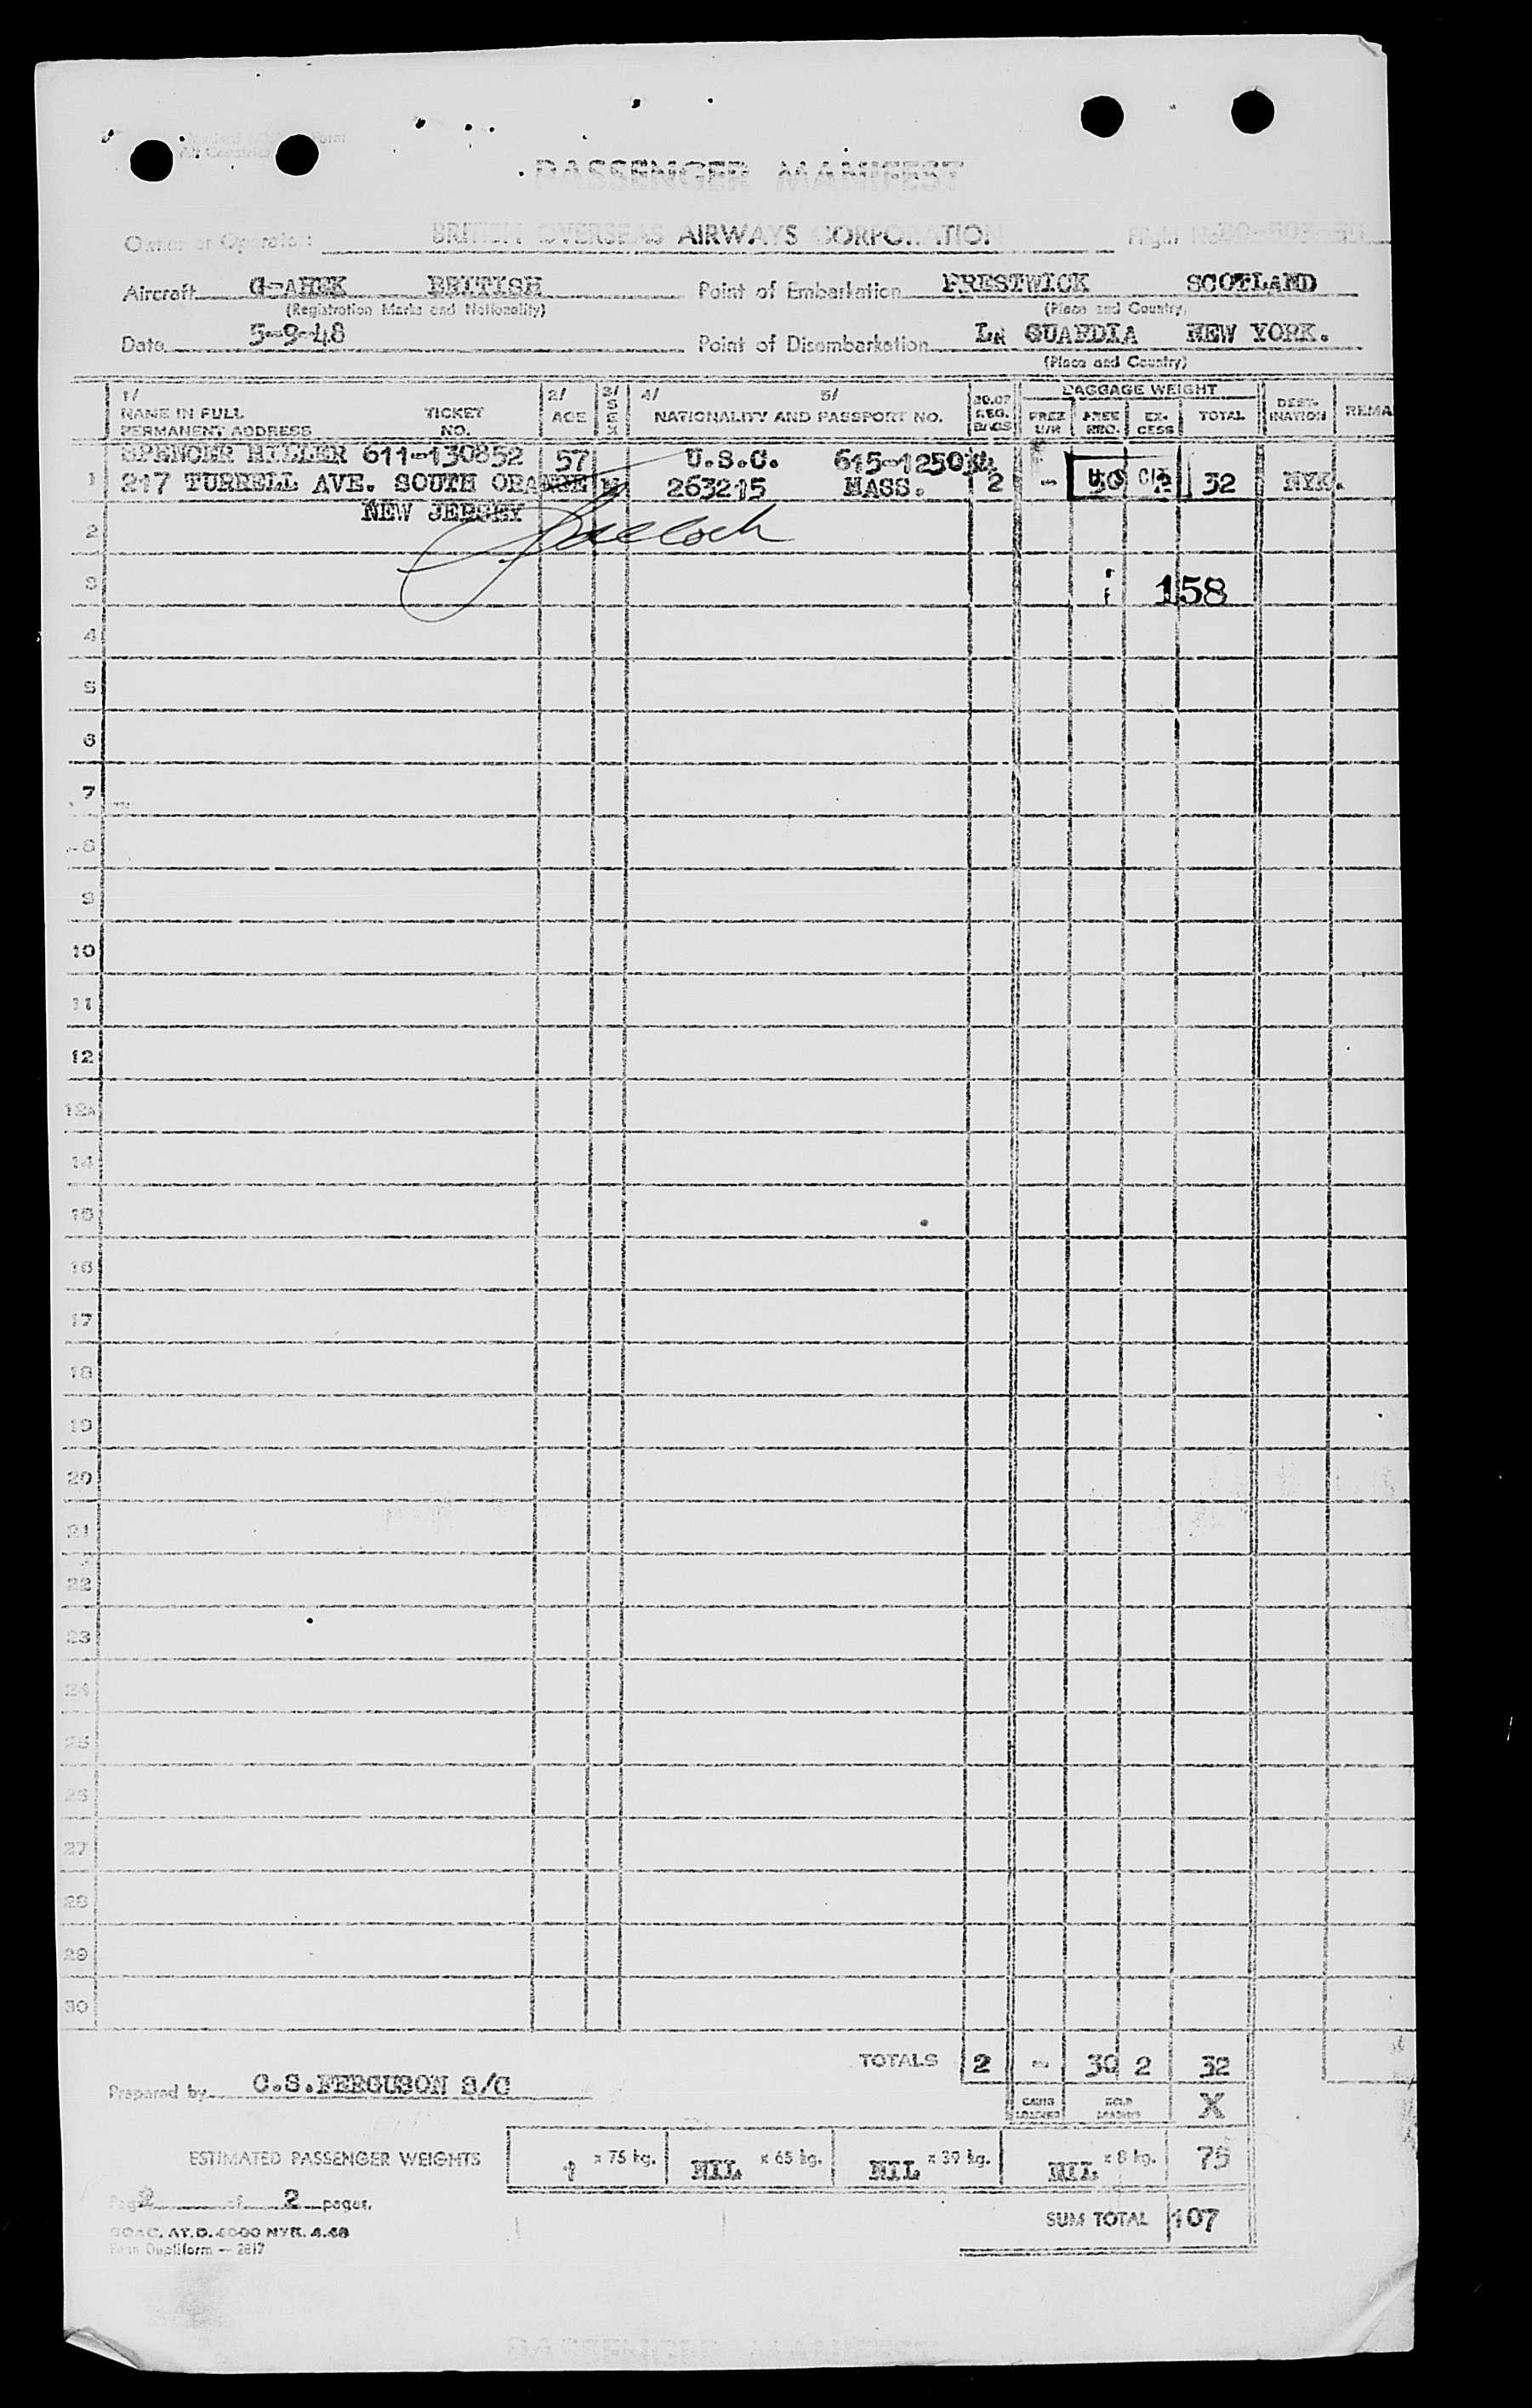 PASSENGER MANIFEST
Owner or Operator: BRITISH OVERSEAS AIRWAYS CORPORATION Flight No.
Aircraft G-AHEK BRITISH Point of Embarkation PRESTWICK SCOTLAND
(Registration Marks and Nationality) (Place and Country)
Date 5-9-48 Point of Disembarkation LA GUARDIA NEW YORK.
(Place and Country)
1/ 2/ 3/ 4/ 5/ BAGGAGE WEIGHT
NAME IN FULL TICKET AGE SEX NATIONALITY AND PASSPORT NO. NO. OF REG. BAGS FREE U/H FREE REG. EX-CESS TOTAL DEST-INATION REMA
PERMANENT ADDRESS NO.
SPENCER MILLER 611-130852 57 U.S.C. 615-12503
1 217 TURRELL AVE. SOUTH ORANGE M 263215 MASS. 2 - 30 2 32 NYK.
NEW JERSEY
2
3 158
4
5
6
7
8
9
10
11
12
12A
14
15
16
17
18
19
20
21
22
23
24
25
26
27
28
29
30
TOTALS 2 - 30 2 32
Prepared by C.S.FERGUSON S/C
CABIN LOADED HOLD LOADING X
ESTIMATED PASSENGER WEIGHTS 1 x 75 kg. NIL x 65 kg. NIL x 39 kg. NIL x 8 kg. 75
Page 2 of 2 pages.
SUM TOTAL 107
BOAC. AT.D. 4000 NYK. 4.48
Dupliform — 2817